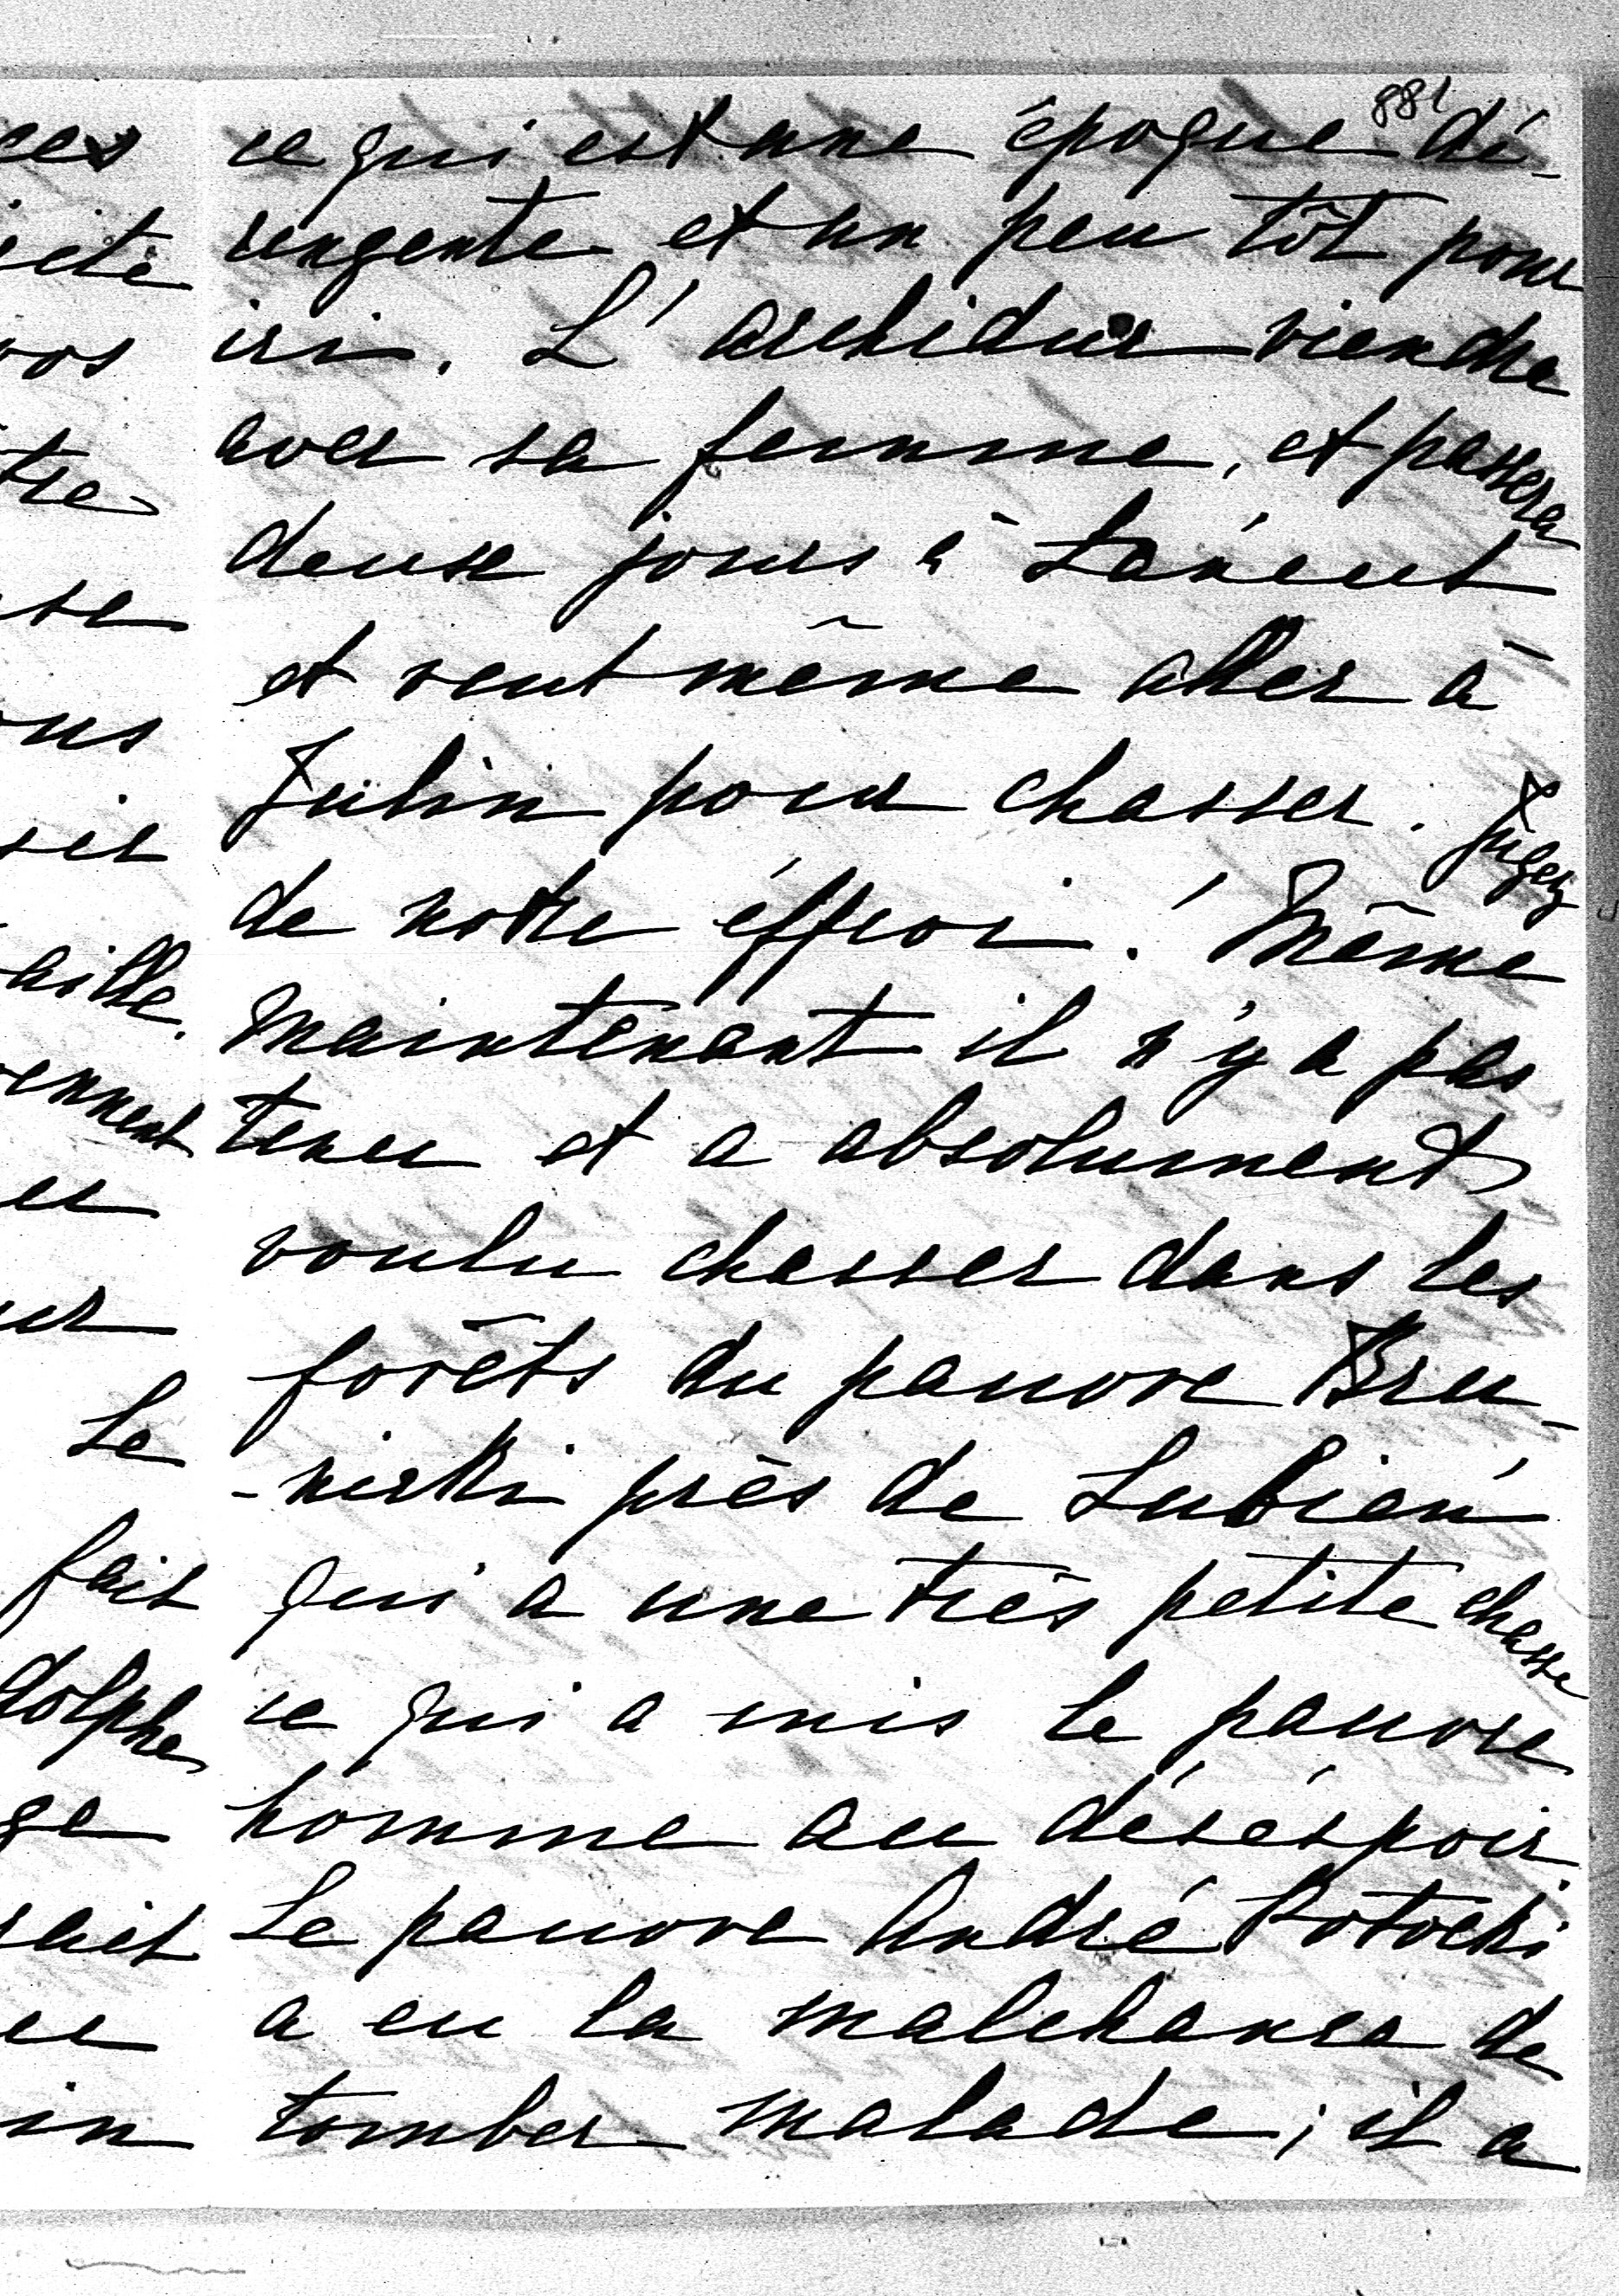 881
ce qui est une époque dé-
rengente et un peu tôt pour
ici. L'archiduc viendra
avec sa femme, et passera
deux jours à Łańcut
et veut même aller à
Julin pour chasser. Jugez
de notre éffroi! Même
maintenant il n'y a pas
tenu et a absolument
voulu chasser dans les
forêts du pauvre Bru-
-nicki près de Lubień
qui a une très petite chasse
ce qui a mis le pauvre
homme au déséspoir.
Le pauvre André Potocki
a eu la malchance de
tomber malade; il a